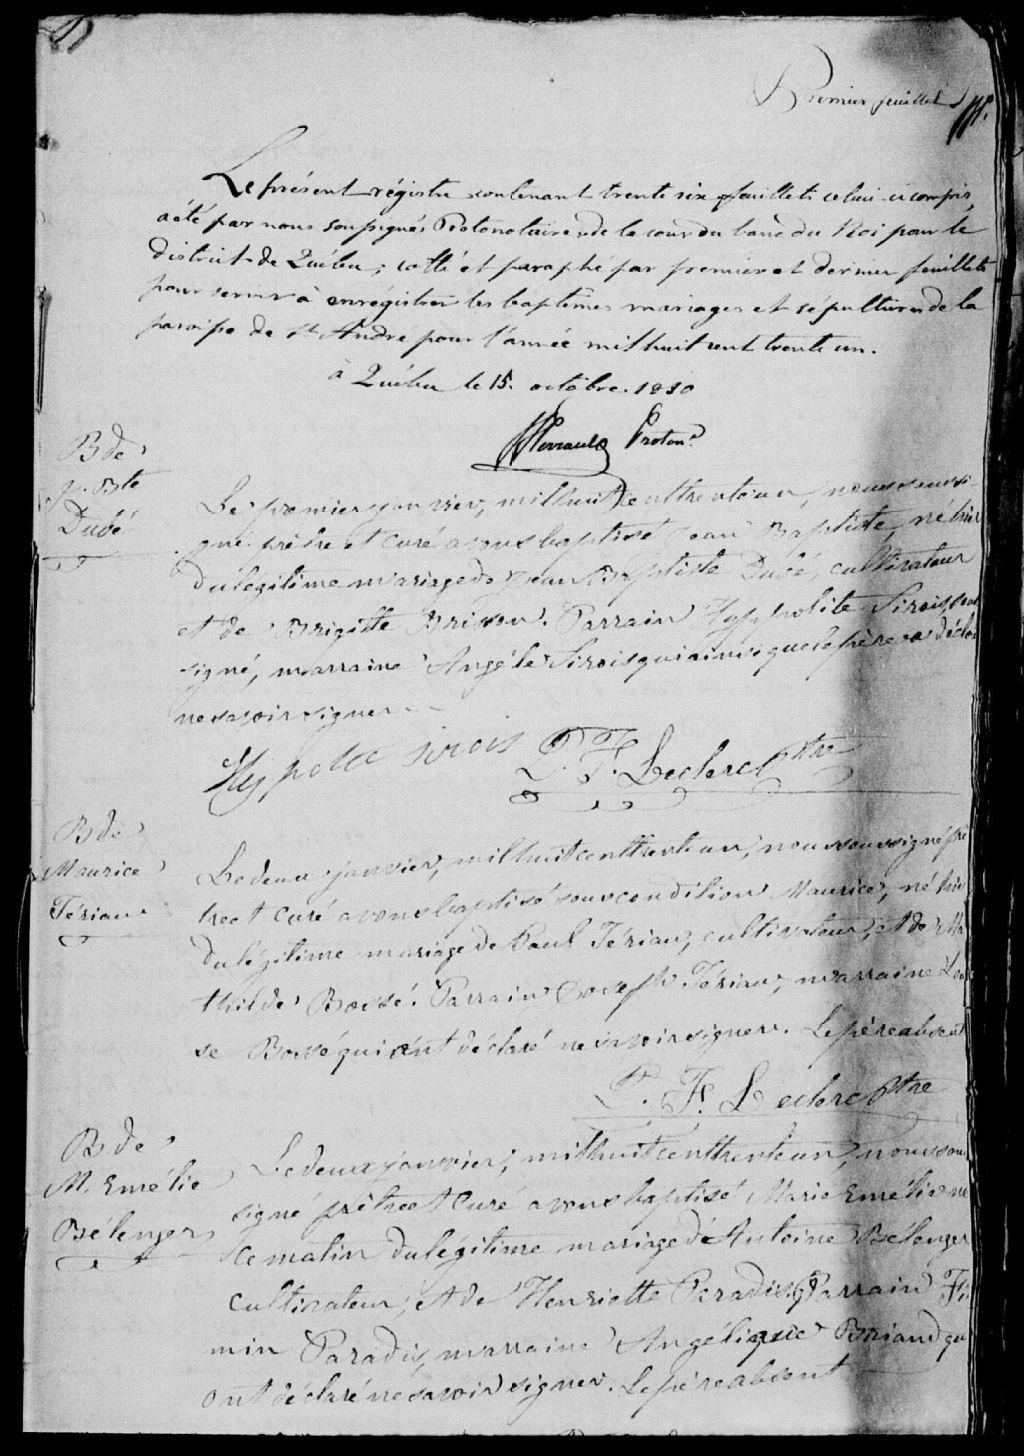 Premier feuillet
Le présent régistre contenant trente six feuillets celui-ci compris,
a été par nous soussignés Protonotaires de la cour du banc du Roi pour le
district de Québec, cotté et paraphé par premier et dernier feuillets
pour servir à enrégistrer les baptêmes mariages et sépultures de la
paroisse de St André pour l'année mil huit cent trente un.
à Québec le 15. octobre. 1830
Perrault Proton.
B de
J. Bte
Dubé
Le premier janvier, mil huit cent trente un, nous soussi-
gné prêtre et curé avons baptisé Jean Baptiste, né hier
du légitime mariage de Jean Baptiste Dubé, cultivateur
et de Brigitte Brisson. Parrain Hyppolite Sirois, sous
signé, marraine Angéle Sirois qui ainsi que le père a décla
ne savoir signer
Hyppolite sirois P. F. Leclerc Ptre
B de
Maurice
Tériau
Le deux janvier, mil huit cent trente un, nous soussigné prê
tre et curé avons baptisé sous condition Maurice, né hier
du légitime mariage de Paul Tériau, cultivateur, et de Ma
thilde Bossé. Parrain Joseph Tériau, marraine Loui
se Bossé qui ont déclaré ne savoir signer. Le père absent
P. F. Leclerc Ptre
B de
M. Emélie
Bélenger
Le deux janvier, mil huit cent trente un, nous sous
signé prêtre et curé avons baptisé Marie Emélie né
ce matin du légitime mariage d'Antoine Bélenger
cultivateur, et de Henriette Paradis. Parrain Fir
min Paradis, marraine Angélique Briand qu
ont déclaré ne savoir signer. Le père absent